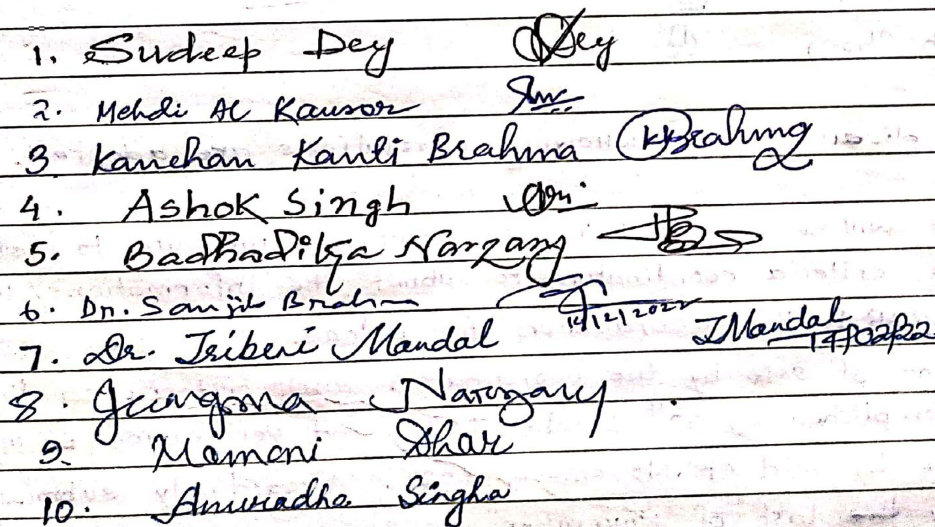 1. Sudeep Dey Dey
2. Mehdi Al Kausor
3 Kanchan Kanti Brahma KKBrahma
4. Ashok Singh
5. Badhaditya Narzary
6. Dr. Sanjib Brahma 14/12/2022
7. Dr. Triberi Mandal TMandal 14/02/22
8. Jwngma Narzary
9. Mamoni Dhar
10. Anuradha Singha